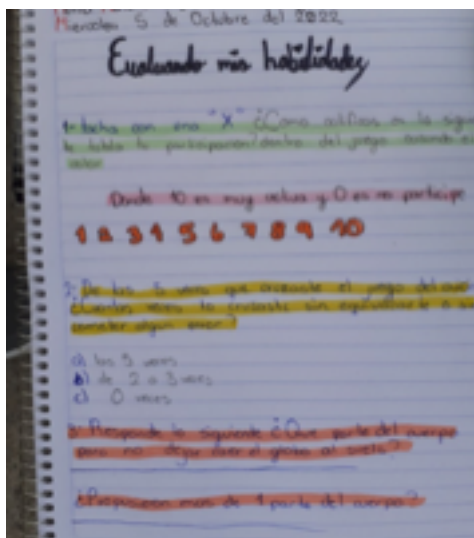 Miercoles 5 de Octubre del 2022
Evaluando mis habilidades
1- tacha con una "X" ¿Como calificas en la
la tabla tu participacion dentro del juego
valor
Donde 10 es muy activa y 0 es no participe
1 2 3 4 5 6 7 8 9 10
2- De las 5 veces que el juego del
¿Cuantas veces lo sin equivocarte o
cometer algun error?
a) las 5 veces
b) de 2 a 3 veces
c) 0 veces
3- Responde lo siguiente ¿Que parte del cuerpo
para no dejar caer el globo al suelo?
¿Propusieron mas de 1 parte del cuerpo?